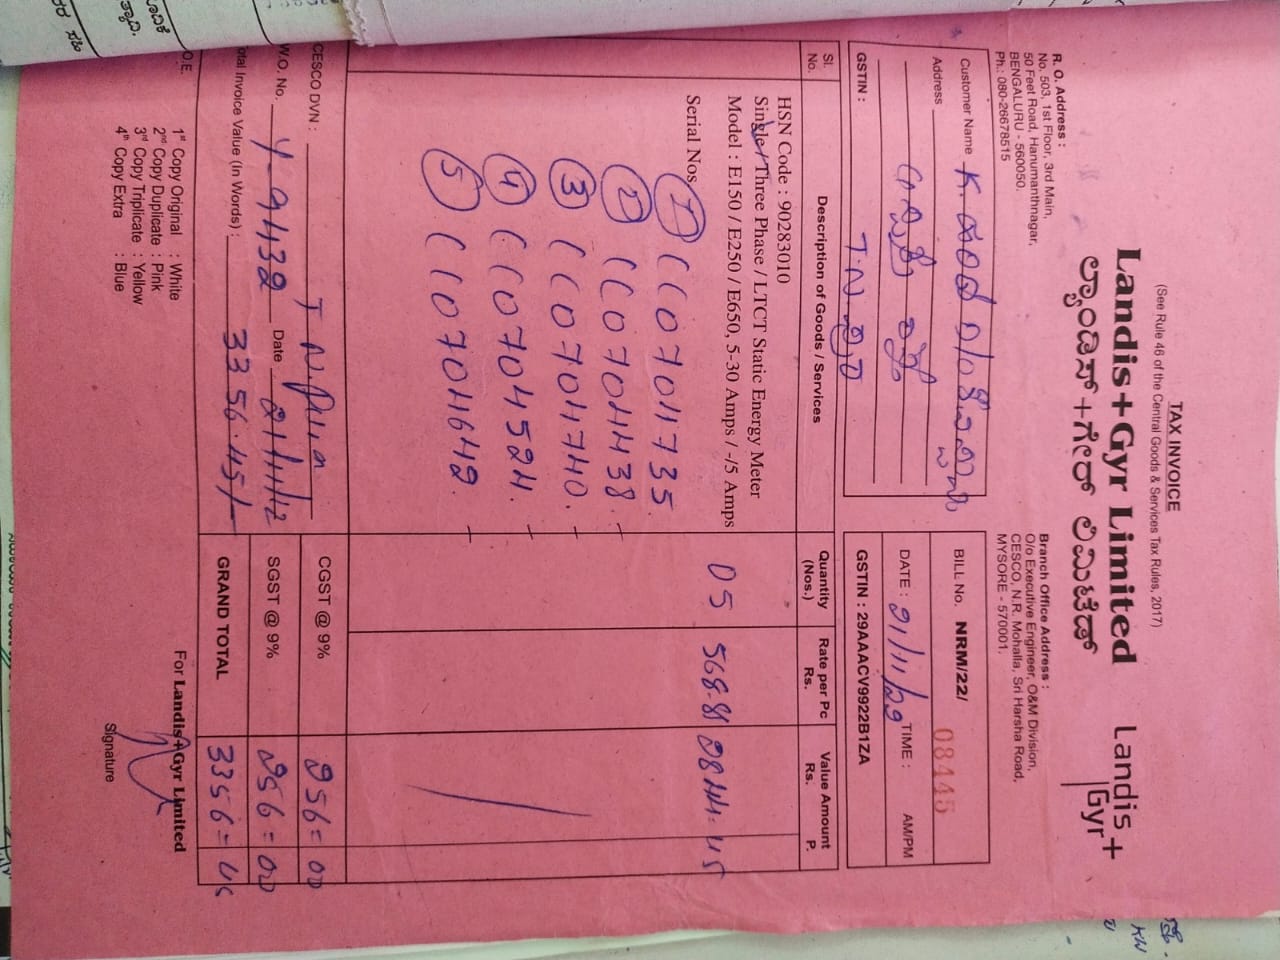 TAX INVOICE
(See Rule 46 of the Central Goods & Services Tax Rules, 2017)
Landis+Gyr Limited
ಲ್ಯಾಂಡಿಸ್+ಗೇರ್ ಲಿಮಿಟೆಡ್
Landis+
Gyr+
R. O. Address :
No. 503, 1st Floor, 3rd Main,
50 Feet Road, Hanumanthnagar,
BENGALURU - 560050.
Ph.: 080-26678515
Branch Office Address :
O/o Executive Engineer, O&M Division,
CESCO, N.R. Mohalla, Sri Harsha Road,
MYSORE - 570001.
Customer Name
Address
GSTIN :
BILL No. NRM/22/ 08445
DATE : 21/11/22 TIME : AM/PM
GSTIN : 29AAACV9922B1ZA
Sl. No. Description of Goods / Services Quantity (Nos.) Rate per Pc Rs. Value Amount Rs. P.
HSN Code : 90283010
Single / Three Phase / LTCT Static Energy Meter
Model : E150 / E250 / E650, 5-30 Amps / -/5 Amps
05 568.81 2844=45
Serial Nos
1 CC0704735.
2 CC0704438.-
3 CC0704740.-
4 CC0704524.-
5 CC0704642.-
CESCO DVN : T N Pura
CGST @ 9% 256=00
W.O. No. Y-9432 Date
SGST @ 9% 256=00
Total Invoice Value (In Words) : 3356.45/-
GRAND TOTAL 3356=45
O.E.
1st Copy Original : White
2nd Copy Duplicate : Pink
3rd Copy Triplicate : Yellow
4th Copy Extra : Blue
For Landis+Gyr Limited
Signature